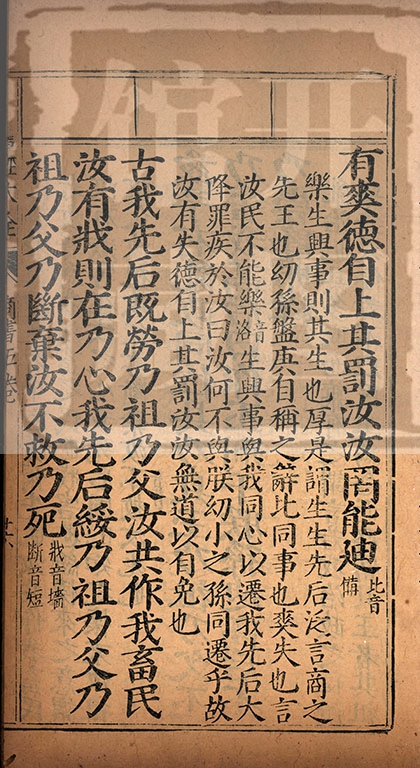 有爽德自上其罰汝汝罔能迪比音備
樂生興事則其生也厚是謂生生先后泛言商之
先王也幼孫盤庚自稱之辭比同事也爽失也言
汝民不能樂音洛生興事與我同心以遷我先后大
降罪疾於汝曰汝何不與朕幼小之孫同遷乎故
汝有失德自上其罰汝汝無道以自免也
古我先后既勞乃祖乃父汝共作我畜民
汝有戕則在乃心我先后綏乃祖乃父乃
祖乃父乃斷棄汝不救乃死戕音墻斷音短
商書五卷